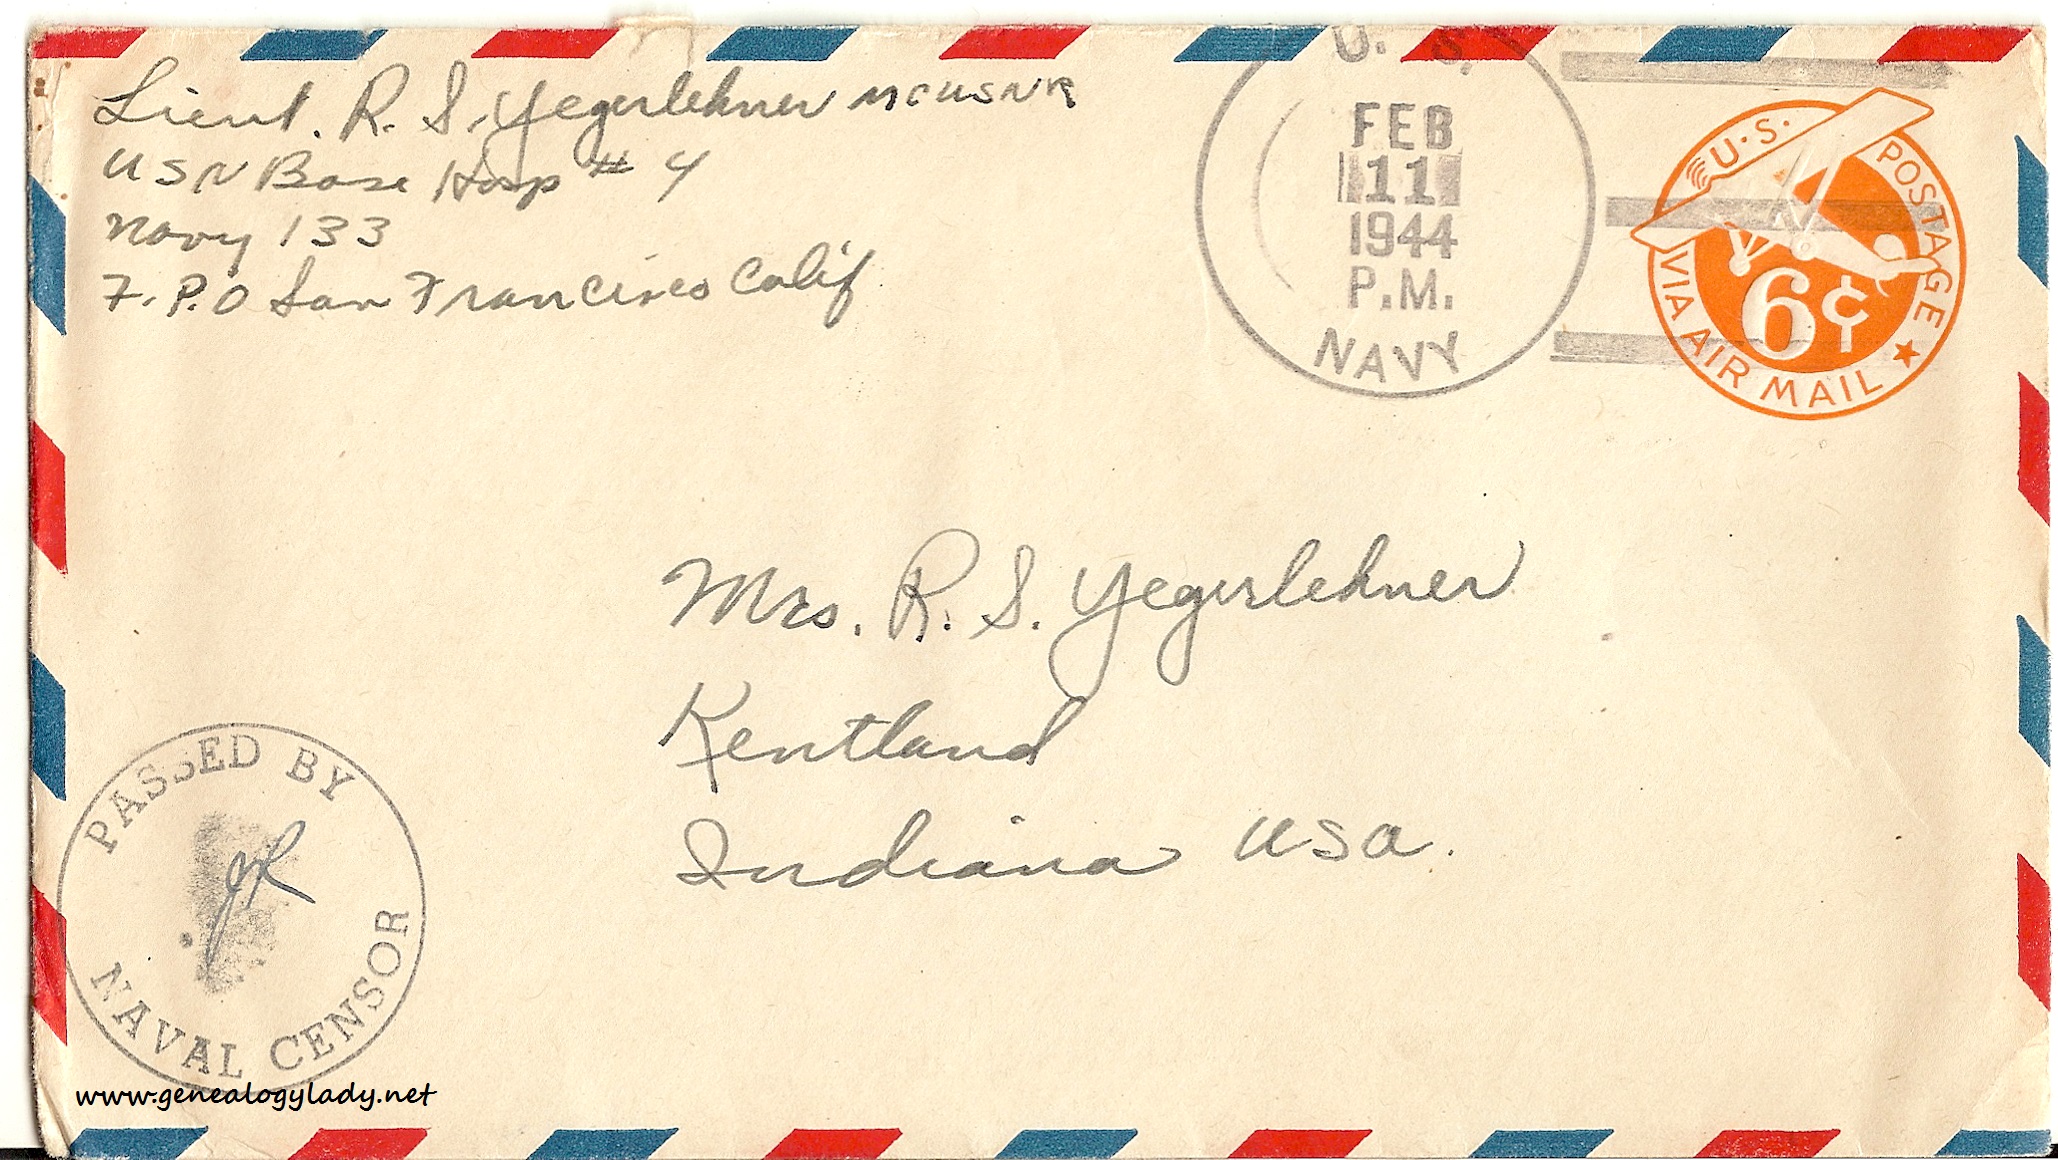 Lieut. R. S. Yegerlehner MCUSNR
USN Base Hosp # 4
Navy 133
F.P.O San Francisco Calif
U. S.
FEB
11
1944
P.M.
NAVY
U.S. POSTAGE
6¢
VIA AIR MAIL
Mrs. R. S. Yegerlehner
Kentland
Indiana USA.
PASSED BY
JR
NAVAL CENSOR
www.genealogylady.net